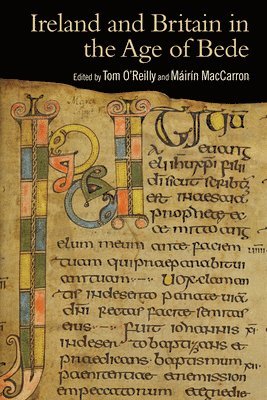 Ireland and Britain in
the Age of Bede
Edited by Tom O'Reilly and Máirín MacCarron
euang
elii ihu xpi filii
di sicut
est in
propheta ec
ce mitto ang
elum meum ante faciem
tuam qui praeparabit ui
am tuam uox claman
tis in deserto parate uia
dni rectas facite semitas
eius fuit iohannis
in deser to baptizans et
praedicans baptismum
paenitentiae in remission
em peccatorum et egredie